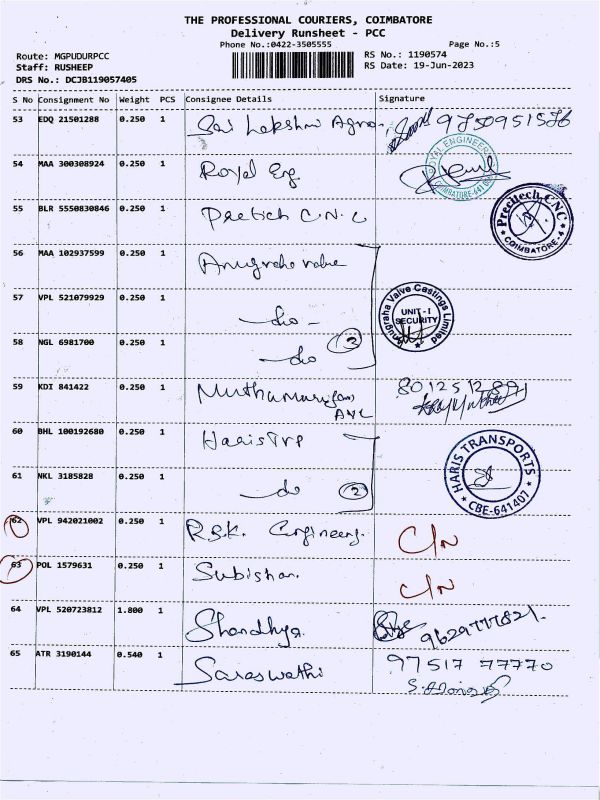 THE PROFESSIONAL COURIERS, COIMBATORE
Delivery Runsheet - PCC
Phone No.:0422-3505555
Page No.:5
Route: MGPUDURPCC
RS No.: 1190574
Staff: RUSHEEP
RS Date: 19-Jun-2023
DRS No.: DCJB119057405
S No Consignment No Weight PCS Consignee Details Signature
53 EDQ 21501288 0.250 1 Sai Lakshmi Agro
54 MAA 300308924 0.250 1 Royal Eng ROYAL ENGINEERS COIMBATORE-641
55 BLR 5550830846 0.250 1 Pretich C.N.C Precitech CNC COIMBATORE-4
56 MAA 102937599 0.250 1 Anugraha valve
57 VPL 521079929 0.250 1 -do- Anugraha Valve Castings Limited UNIT-I SECURITY
58 NGL 6981700 0.250 1 do
59 KDI 841422 0.250 1 80125
60 BHL 100192680 0.250 1 Haris Trp HARIS TRANSPORTS CBE-641407
61 NKL 3185828 0.250 1 do 2
62 VPL 942021002 0.250 1 R.S.K. Engineers C/N
63 POL 1579631 0.250 1 C/N
64 VPL 520723812 1.800 1 Shandhya 9629777821.
65 ATR 3190144 0.540 1 Saraswathi 97517 77770